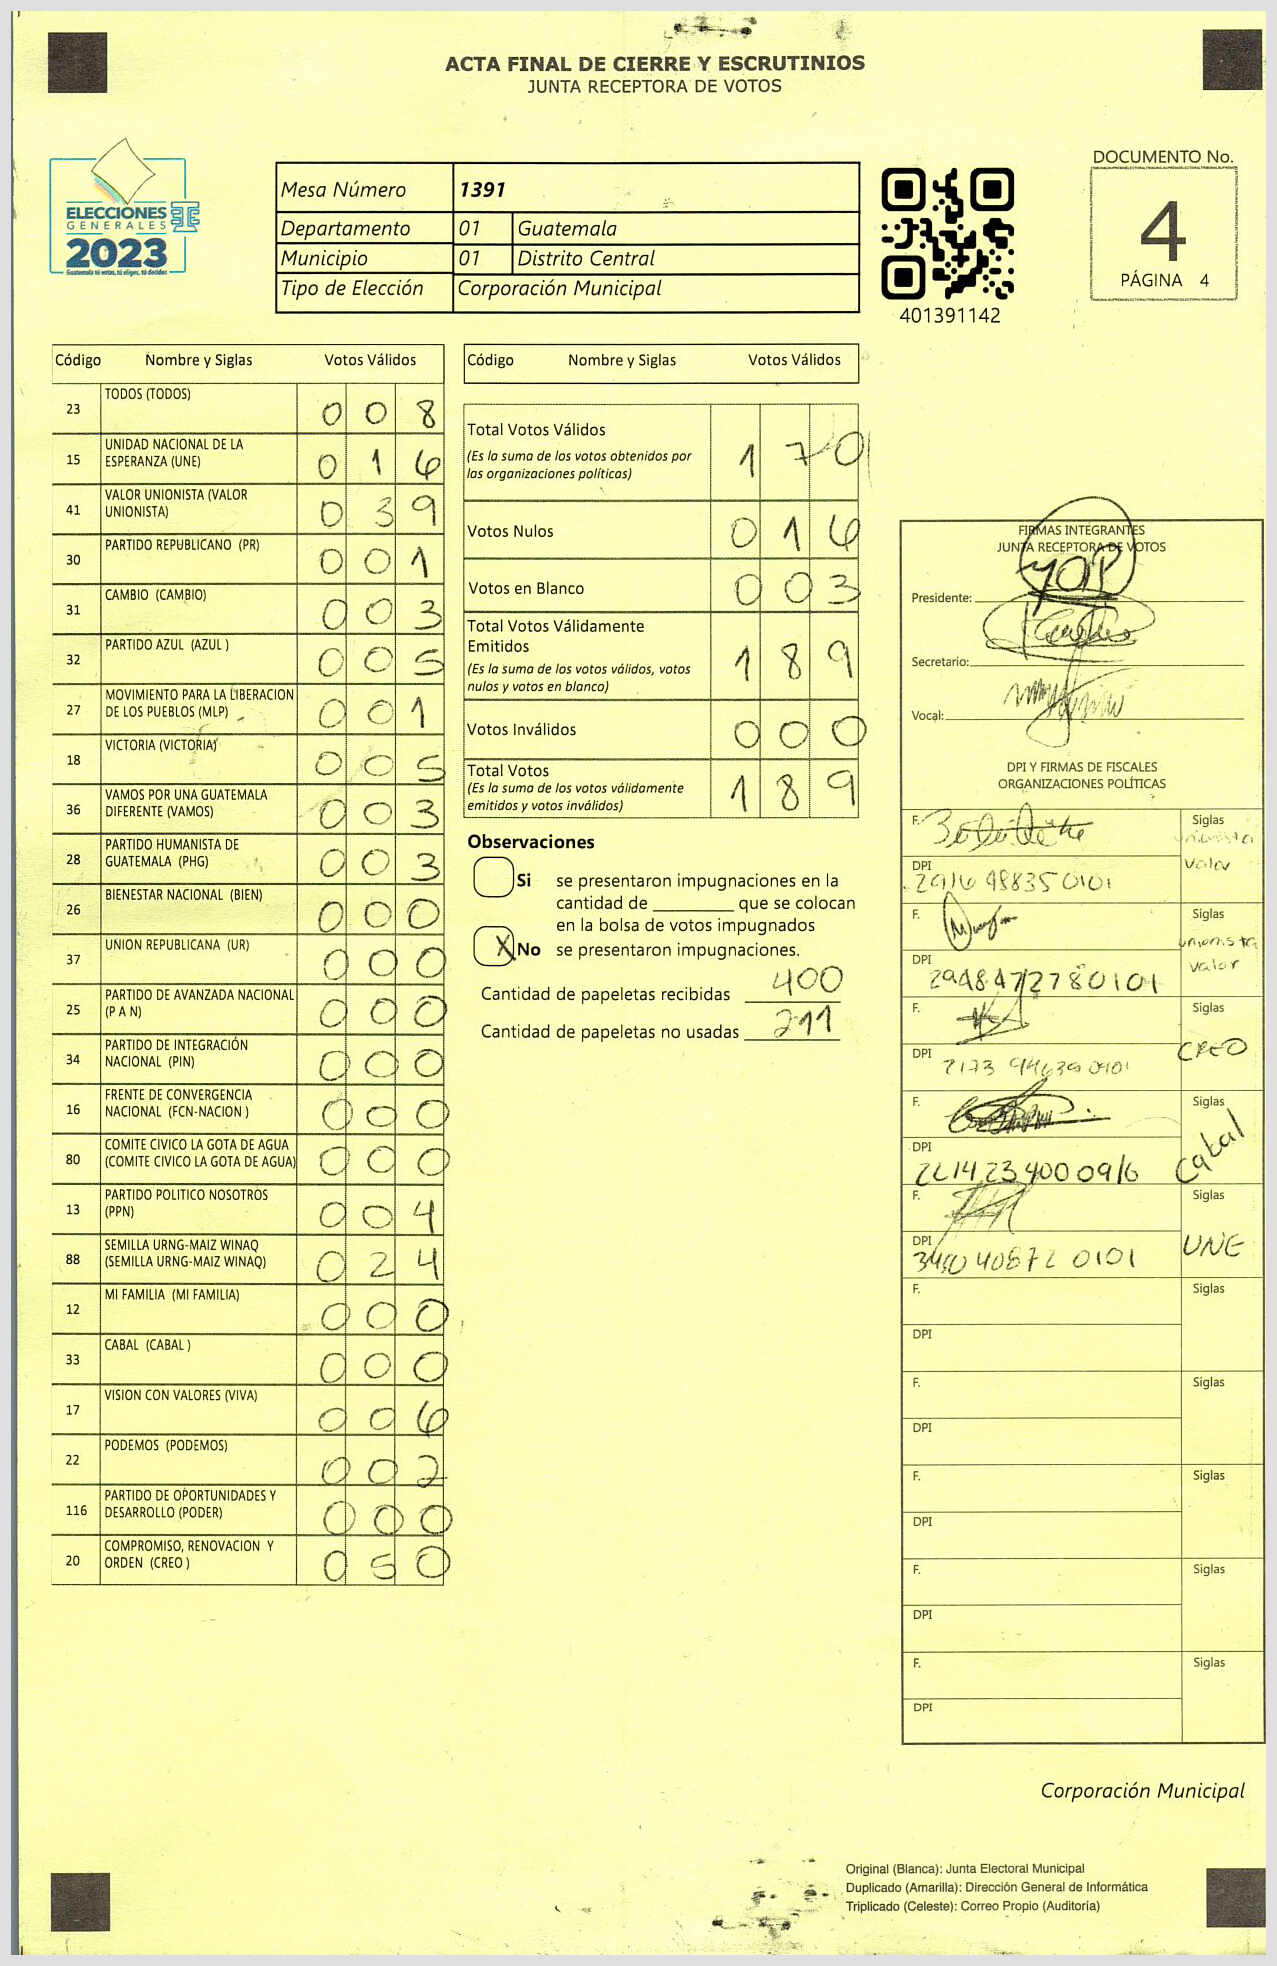 ACTA FINAL DE CIERRE Y ESCRUTINIOS
JUNTA RECEPTORA DE VOTOS
ELECCIONES
GENERALES
2023
Guatemala tú votas, tú eliges, tú decides
Mesa Número 1391
Departamento 01 Guatemala
Municipio 01 Distrito Central
Tipo de Elección Corporación Municipal
401391142
DOCUMENTO No.
4
PÁGINA 4
Código Nombre y Siglas Votos Válidos
23 TODOS (TODOS) 0 0 8
15 UNIDAD NACIONAL DE LA ESPERANZA (UNE) 0 1 6
41 VALOR UNIONISTA (VALOR UNIONISTA) 0 3 9
30 PARTIDO REPUBLICANO (PR) 0 0 1
31 CAMBIO (CAMBIO) 0 0 3
32 PARTIDO AZUL (AZUL ) 0 0 5
27 MOVIMIENTO PARA LA LIBERACION DE LOS PUEBLOS (MLP) 0 0 1
18 VICTORIA (VICTORIA) 0 0 5
36 VAMOS POR UNA GUATEMALA DIFERENTE (VAMOS) 0 0 3
28 PARTIDO HUMANISTA DE GUATEMALA (PHG) 0 0 3
26 BIENESTAR NACIONAL (BIEN) 0 0 0
37 UNION REPUBLICANA (UR) 0 0 0
25 PARTIDO DE AVANZADA NACIONAL (P A N) 0 0 0
34 PARTIDO DE INTEGRACIÓN NACIONAL (PIN) 0 0 0
16 FRENTE DE CONVERGENCIA NACIONAL (FCN-NACION ) 0 0 0
80 COMITE CIVICO LA GOTA DE AGUA (COMITE CIVICO LA GOTA DE AGUA) 0 0 0
13 PARTIDO POLITICO NOSOTROS (PPN) 0 0 4
88 SEMILLA URNG-MAIZ WINAQ (SEMILLA URNG-MAIZ WINAQ) 0 2 4
12 MI FAMILIA (MI FAMILIA) 0 0 0
33 CABAL (CABAL ) 0 0 0
17 VISION CON VALORES (VIVA) 0 0 6
22 PODEMOS (PODEMOS) 0 0 2
116 PARTIDO DE OPORTUNIDADES Y DESARROLLO (PODER) 0 0 0
20 COMPROMISO, RENOVACION Y ORDEN (CREO ) 0 5 0
Código Nombre y Siglas Votos Válidos
Total Votos Válidos 1 7 0
(Es la suma de los votos obtenidos por
las organizaciones políticas)
Votos Nulos 0 1 6
Votos en Blanco 0 0 3
Total Votos Válidamente
Emitidos 1 8 9
(Es la suma de los votos válidos, votos
nulos y votos en blanco)
Votos Inválidos 0 0 0
Total Votos 1 8 9
(Es la suma de los votos válidamente
emitidos y votos inválidos)
Observaciones
Si se presentaron impugnaciones en la
cantidad de ________ que se colocan
en la bolsa de votos impugnados
X No se presentaron impugnaciones.
Cantidad de papeletas recibidas 400
Cantidad de papeletas no usadas 211
FIRMAS INTEGRANTES
JUNTA RECEPTORA DE VOTOS
Presidente:
Secretario:
Vocal:
DPI Y FIRMAS DE FISCALES
ORGANIZACIONES POLÍTICAS
F. Siglas
unionista
valor
DPI 2916 98835 0101
F. Siglas
unionista
valor
DPI 2948472780101
F. Siglas
CREO
DPI 2173 94639 0101
F. Siglas
Cabal
DPI
F. Siglas
UNE
DPI
F. Siglas
DPI
F. Siglas
DPI
F. Siglas
DPI
F. Siglas
DPI
F. Siglas
DPI
Corporación Municipal
Original (Blanca): Junta Electoral Municipal
Duplicado (Amarilla): Dirección General de Informática
Triplicado (Celeste): Correo Propio (Auditoría)